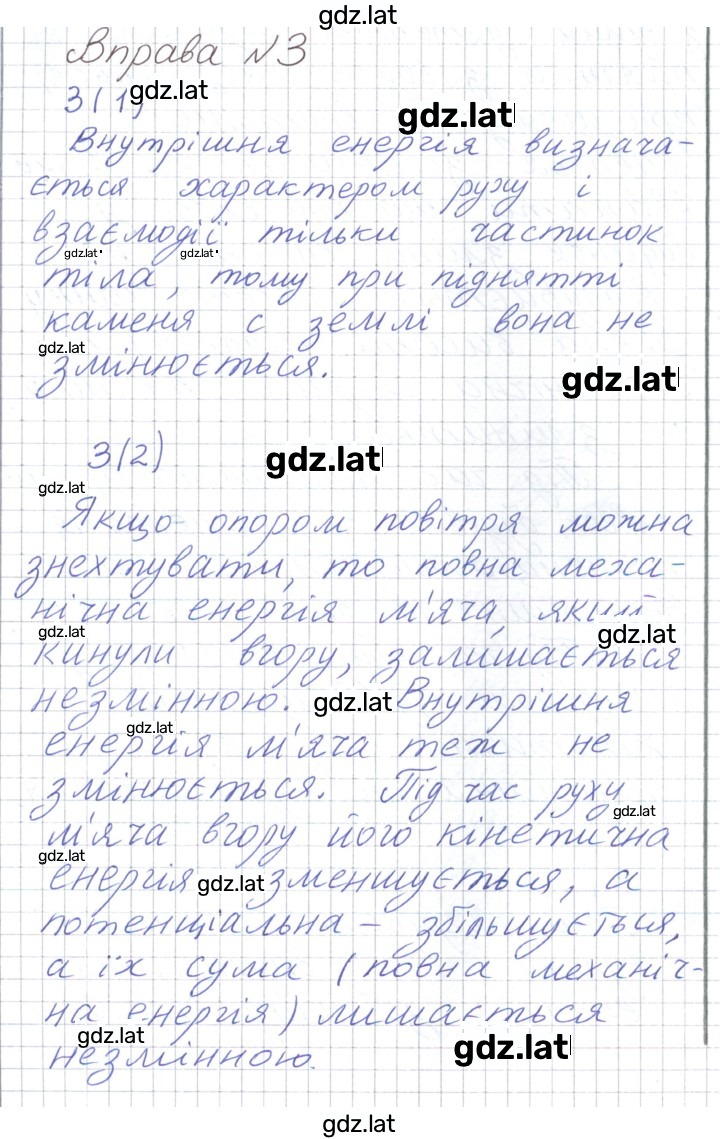 gdz.lat
Вправа №3
gdz.lat
3(1)
gdz.lat
Внутрішня енергія визнача-
ється характером руху і
взаємодії тільки частинок
gdz.lat gdz.lat
тіла, тому при піднятті
каменя с землі вона не
gdz.lat
змінюється.
gdz.lat
3(2)
gdz.lat
gdz.lat
Якщо опором повітря можна
знехтувати, то повна меха-
нічна енергія м'яча, який
gdz.lat gdz.lat
кинули вгору, залишається
незмінною. gdz.lat Внутрішня
gdz.lat
енергія м'яча теж не
змінюється. Під час руху
gdz.lat
м'яча вгору його кінетична
gdz.lat
енергія gdz.lat зменшується, а
потенціальна – збільшується,
а їх сума (повна механіч-
на енергія) лишається
gdz.lat
незмінною.
gdz.lat
gdz.lat